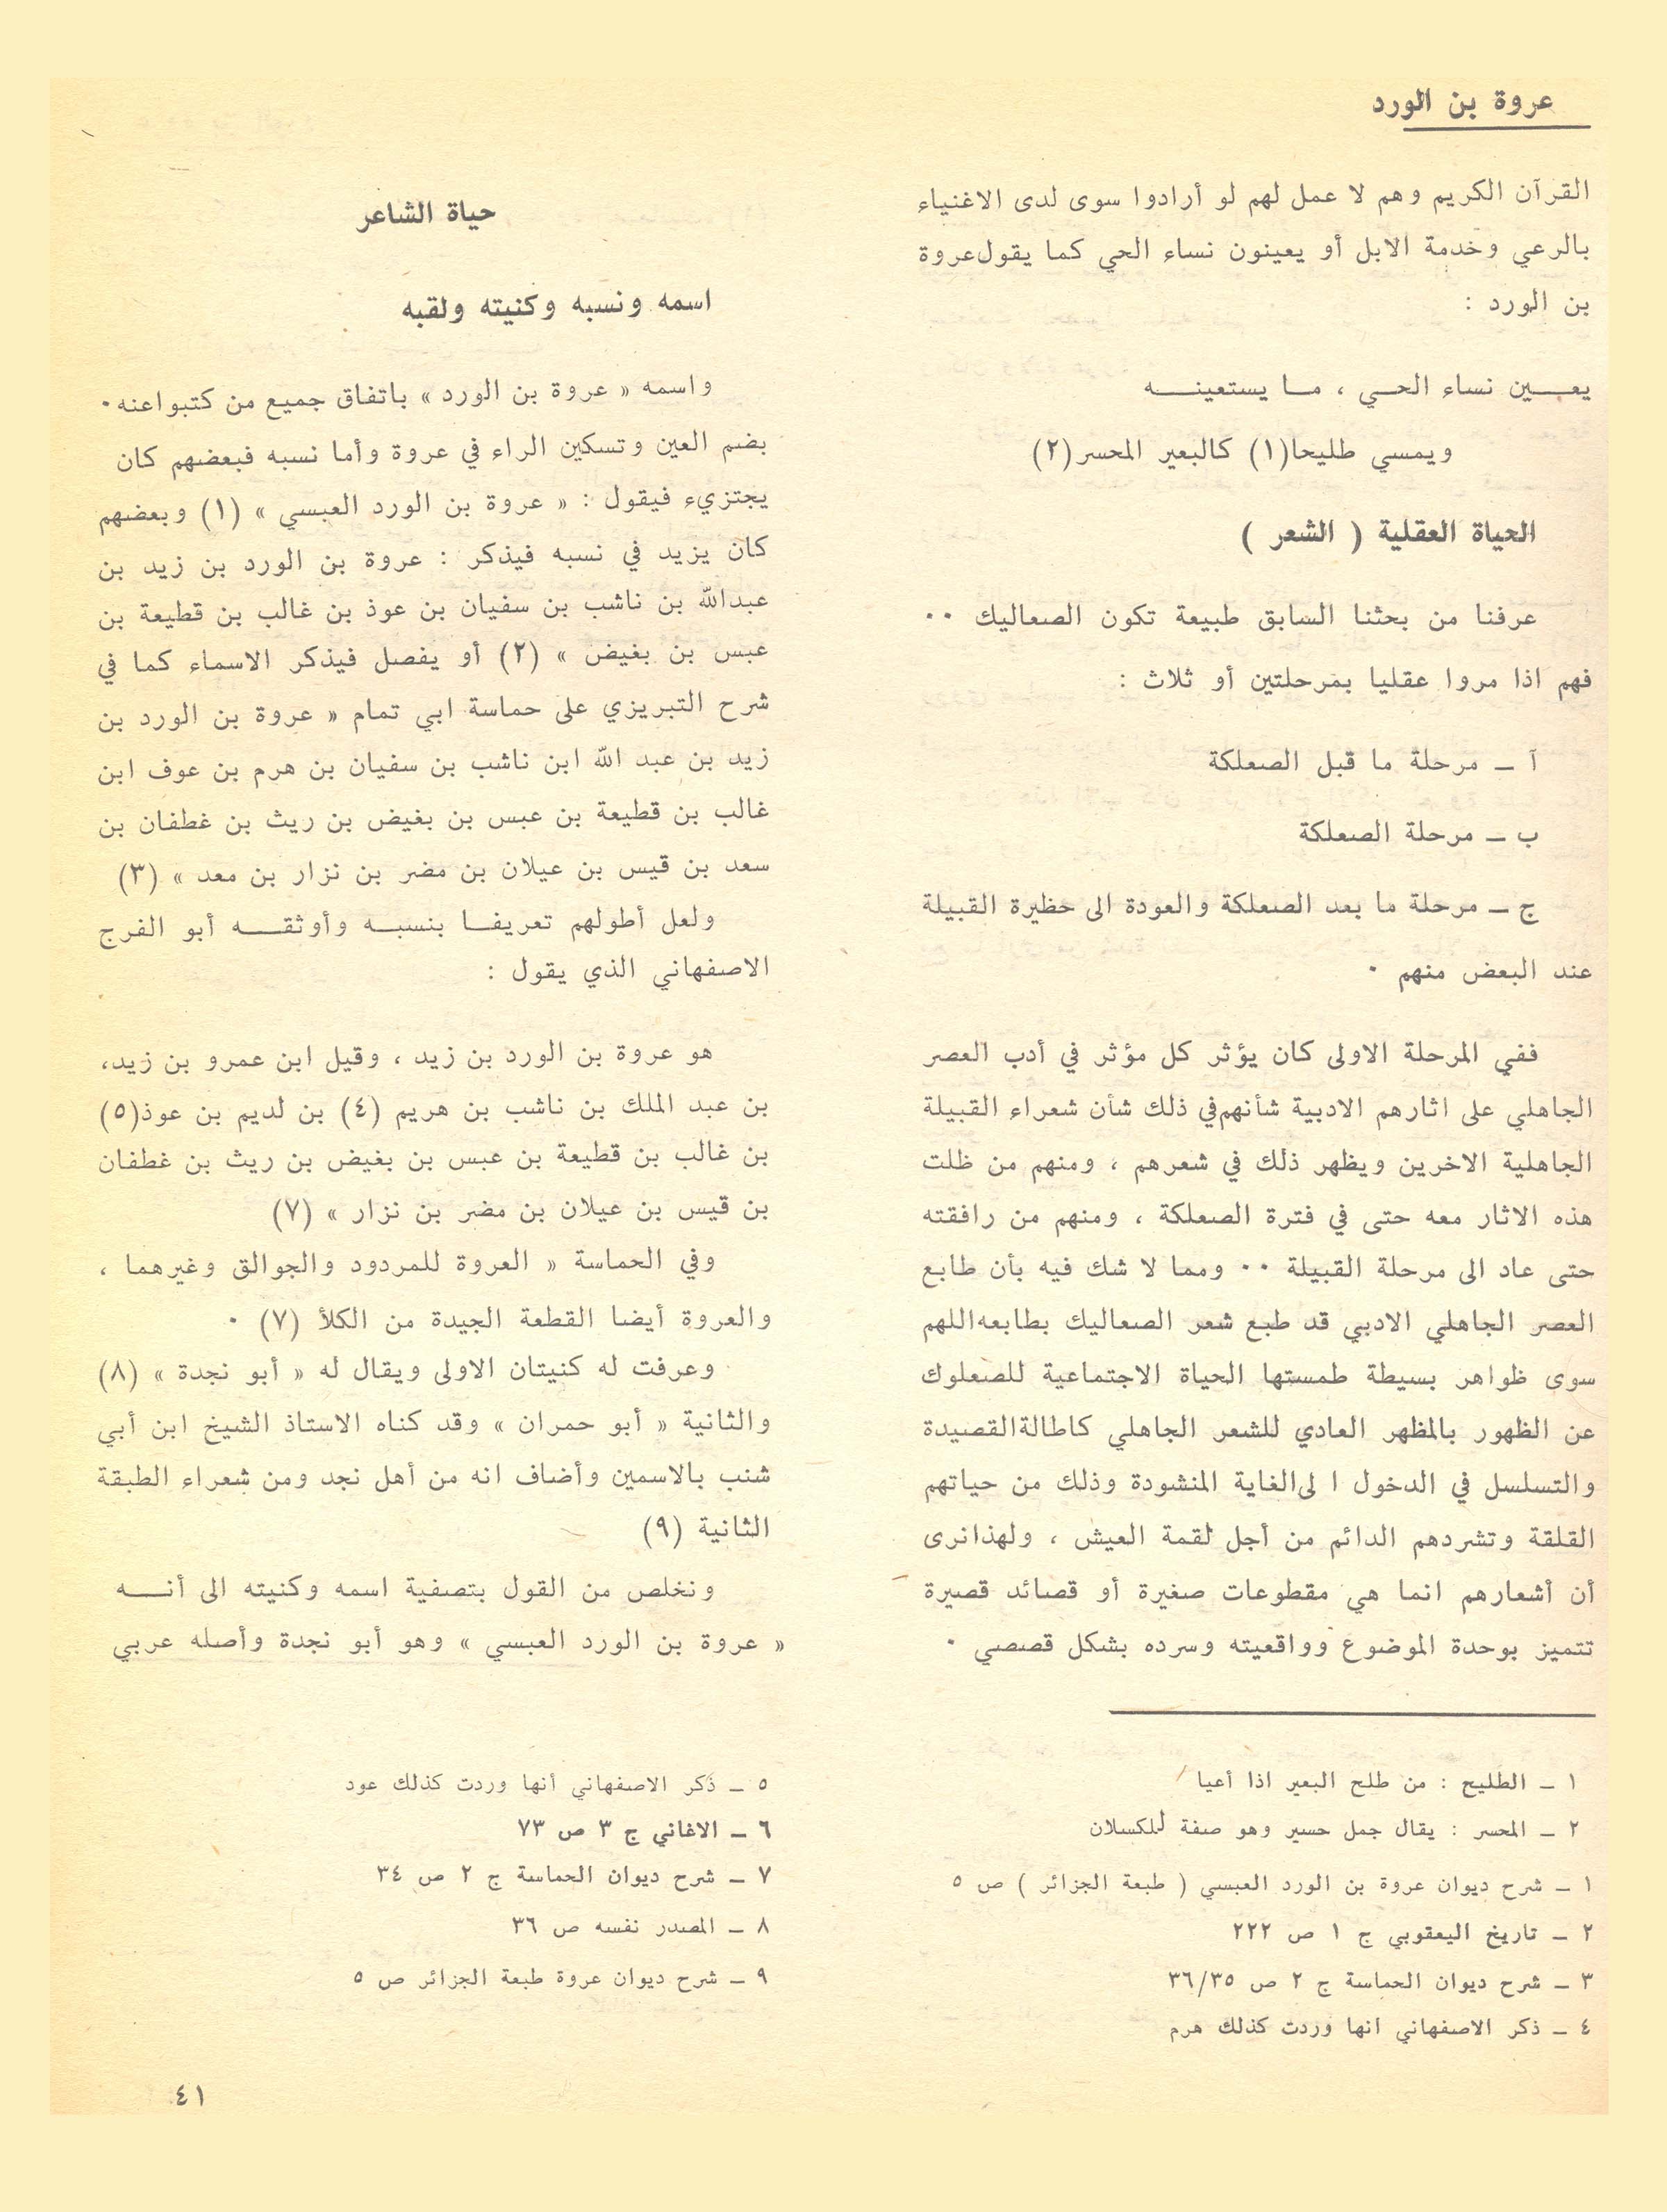 عروة بن الورد
القرآن الكريم وهم لا عمل لهم لو أرادوا سوى لدى الاغنياء
بالرعي وخدمة الابل أو يعينون نساء الحي كما يقول عروة
بن الورد :
يعـــين نساء الحـــي ، مـــا يستعينـــه
ويمسي طليحا(١) كالبعير المحسر(٢)
الحياة العقلية ( الشعر )
عرفنا من بحثنا السابق طبيعة تكون الصعاليك ٠٠
فهم اذا مروا عقليا بمرحلتين أو ثلاث :
آ ــ مرحلة ما قبل الصعلكة
ب ــ مرحلة الصعلكة
ج ــ مرحلة ما بعد الصعلكة والعودة الى حظيرة القبيلة
عند البعض منهم ٠
ففي المرحلة الاولى كان يؤثر كل مؤثر في أدب العصر
الجاهلي على اثارهم الادبية شأنهم في ذلك شأن شعراء القبيلة
الجاهلية الاخرين ويظهر ذلك في شعرهم ، ومنهم من ظلت
هذه الاثار معه حتى في فترة الصعلكة ، ومنهم من رافقته
حتى عاد الى مرحلة القبيلة ٠٠ ومما لا شك فيه بأن طابع
العصر الجاهلي الادبي قد طبع شعر الصعاليك بطابعه اللهم
سوى ظواهر بسيطة طمستها الحياة الاجتماعية للصعلوك
عن الظهور بالمظهر العادي للشعر الجاهلي كاطالة القصيدة
والتسلسل في الدخول ا لى الغاية المنشودة وذلك من حياتهم
القلقة وتشردهم الدائم من أجل لقمة العيش ، ولهذا نرى
أن أشعارهم انما هي مقطوعات صغيرة أو قصائد قصيرة
تتميز بوحدة الموضوع وواقعيته وسرده بشكل قصصي ٠
١ ــ الطليح : من طلح البعير اذا أعيا
٢ ــ المحسر : يقال جمل حسير وهو صفة للكسلان
١ ــ شرح ديوان عروة بن الورد العبسي ( طبعة الجزائر ) ص ٥
٢ ــ تاريخ اليعقوبي ج ١ ص ٢٢٢
٣ ــ شرح ديوان الحماسة ج ٢ ص ٣٦/٣٥
٤ ــ ذكر الاصفهاني انها وردت كذلك هرم
حياة الشاعر
اسمه ونسبه وكنيته ولقبه
واسمه « عروة بن الورد » باتفاق جميع من كتبوا عنه ٠
بضم العين وتسكين الراء في عروة وأما نسبه فبعضهم كان
يجتزيء فيقول : « عروة بن الورد العبسي » (١) وبعضهم
كان يزيد في نسبه فيذكر : عروة بن الورد بن زيد بن
عبدالله بن ناشب بن سفيان بن عوذ بن غالب بن قطيعة بن
عبس بن بغيض » (٢) أو يفصل فيذكر الاسماء كما في
شرح التبريزي على حماسة ابي تمام « عروة بن الورد بن
زيد بن عبد الله ابن ناشب بن سفيان بن هرم بن عوف ابن
غالب بن قطيعة بن عبس بن بغيض بن ريث بن غطفان بن
سعد بن قيس بن عيلان بن مضر بن نزار بن معد » (٣)
ولعل أطولهم تعريفـــا بنسبـــه وأوثقـــه أبو الفرج
الاصفهاني الذي يقول :
هو عروة بن الورد بن زيد ، وقيل ابن عمرو بن زيد،
بن عبد الملك بن ناشب بن هريم (٤) بن لديم بن عوذ(٥)
بن غالب بن قطيعة بن عبس بن بغيض بن ريث بن غطفان
بن قيس بن عيلان بن مضر بن نزار » (٧)
وفي الحماسة « العروة للمردود والجوالق وغيرهما ،
والعروة أيضا القطعة الجيدة من الكلأ (٧) ٠
وعرفت له كنيتان الاولى ويقال له « أبو نجدة » (٨)
والثانية « أبو حمران » وقد كناه الاستاذ الشيخ ابن أبي
شنب بالاسمين وأضاف انه من أهل نجد ومن شعراء الطبقة
الثانية (٩)
ونخلص من القول بتصفية اسمه وكنيته الى أنـــه
« عروة بن الورد العبسي » وهو أبو نجدة وأصله عربي
٥ ــ ذكر الاصفهاني أنها وردت كذلك عود
٦ ــ الاغاني ج ٣ ص ٧٣
٧ ــ شرح ديوان الحماسة ج ٢ ص ٣٤
٨ ــ المصدر نفسه ص ٣٦
٩ ــ شرح ديوان عروة طبعة الجزائر ص ٥
٤١